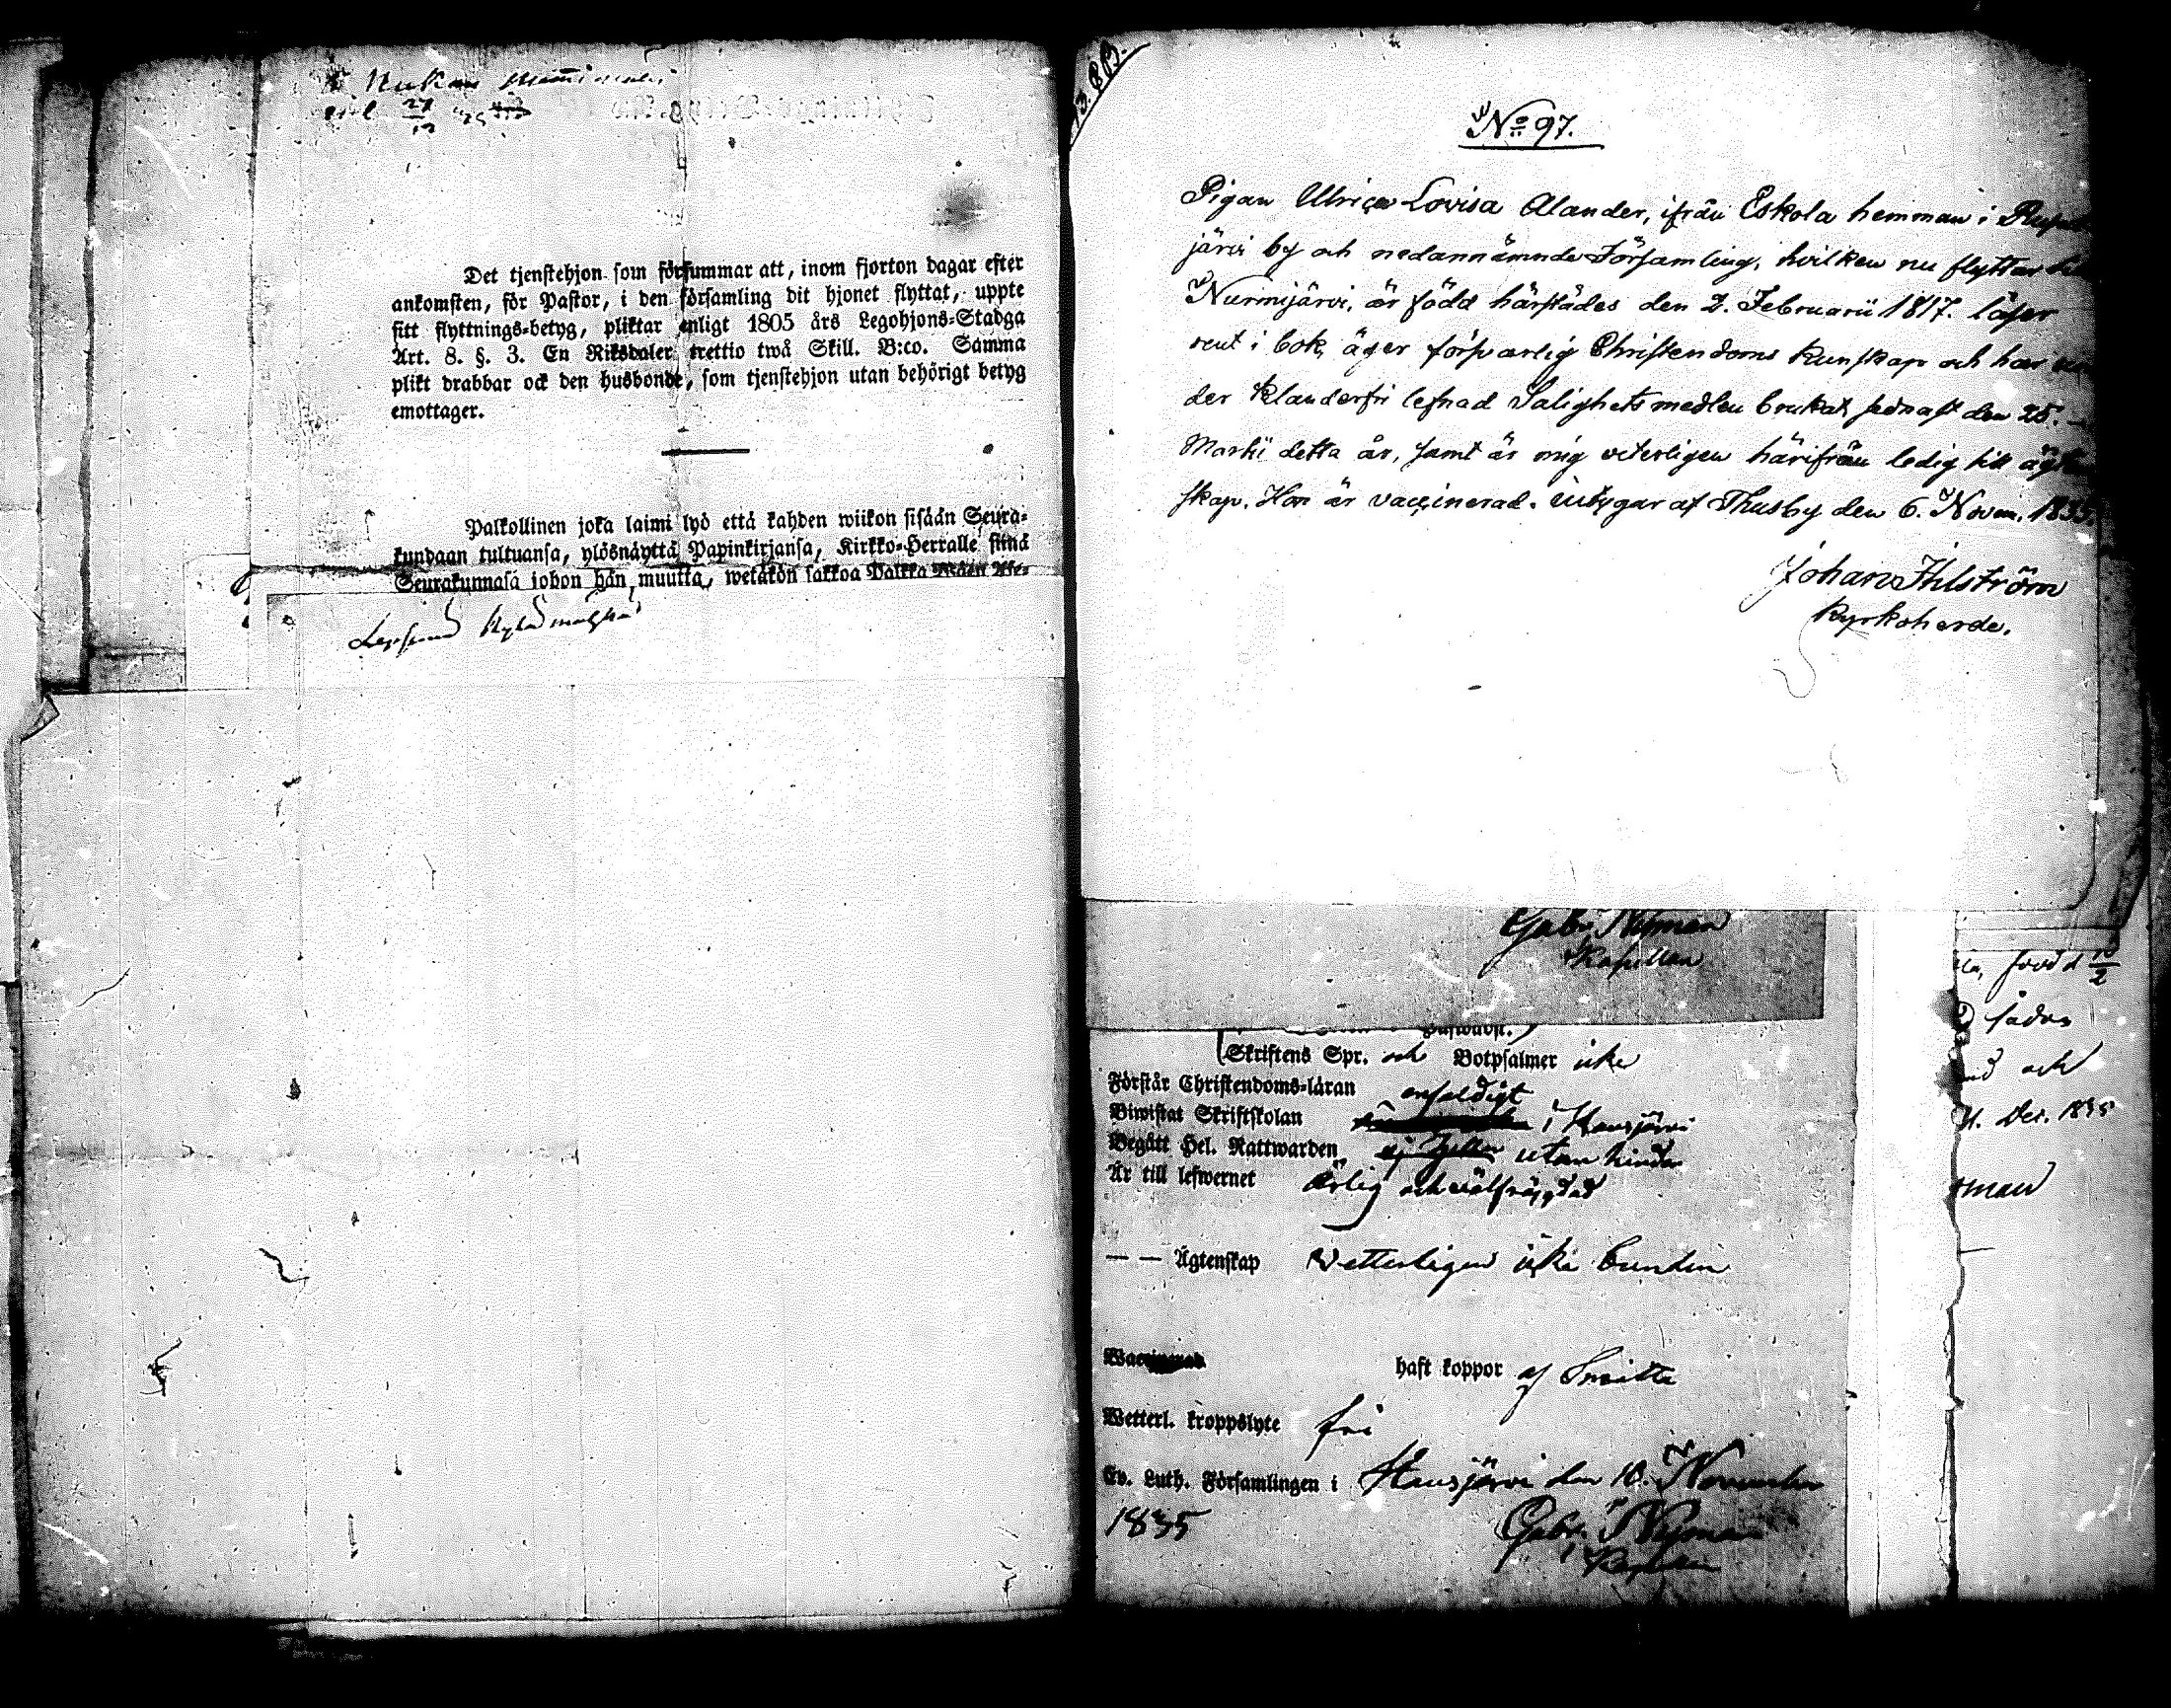 Det tjenstehjon som försummar att, inom fjorton dagar efter
ankomsten, för Pastor, i den församling dit hjonet flyttat, uppte
sitt flyttnings-betyg, pliktar enligt 1805 års Legohjons-Stadga
Art. 8. §. 3. En Riksdaler trettio twå Skill. B:co. Samma
plikt drabbar ock den husbonde, som tjenstehjon utan behörigt betyg
emottager.
Palkollinen joka laimi lyö että kahden wiikon sisään Seura-
kundaan tultuansa, ylösnäyttä Papinkirjansa, Kirkko-Herralle siinä
Seurakunnasa johon hän muutta, wetäkön sakkoa Palkka
No 97.
Pigan Ulrica Lovisa Alander, ifrån Eskola hemman i
järvi by och nedannämnde Församling, hvilken nu flyttar till
Nurmijärvi, är född härstädes den 2. Februarii 1817. läser
rent i bok, äger försvarlig Christendoms kunskap och har un
der klanderfri lefnad Salighets medlen brukat sednast den 25.
Martii detta år, samt är mig veterligen härifrån ledig till ägten
skap. Hon är vaccinerad. intygar af Thusby den 6. Novem. 1835.
Johan Ihlström
Kyrkoherde.
Gabr. Nyman
Kapellan
Skriftens Spr. och Botpsalmer icke
Förstår Christendoms-läran enfaldigt
Biwistat Skriftskolan i Hausjärvi
Begått Hel. Nattwarden utan hinder
Är till lefwernet ärlig och välfrägdad
— — Ägtenskap Vetterligen icke bunden
haft koppor af Smitta
Wetterl. kroppslyte fri
Ev. Luth. Församlingen i Hausjärvi den 10. November
1835
Gabr. Nyman
Kapellan
född
och
Dec. 1835